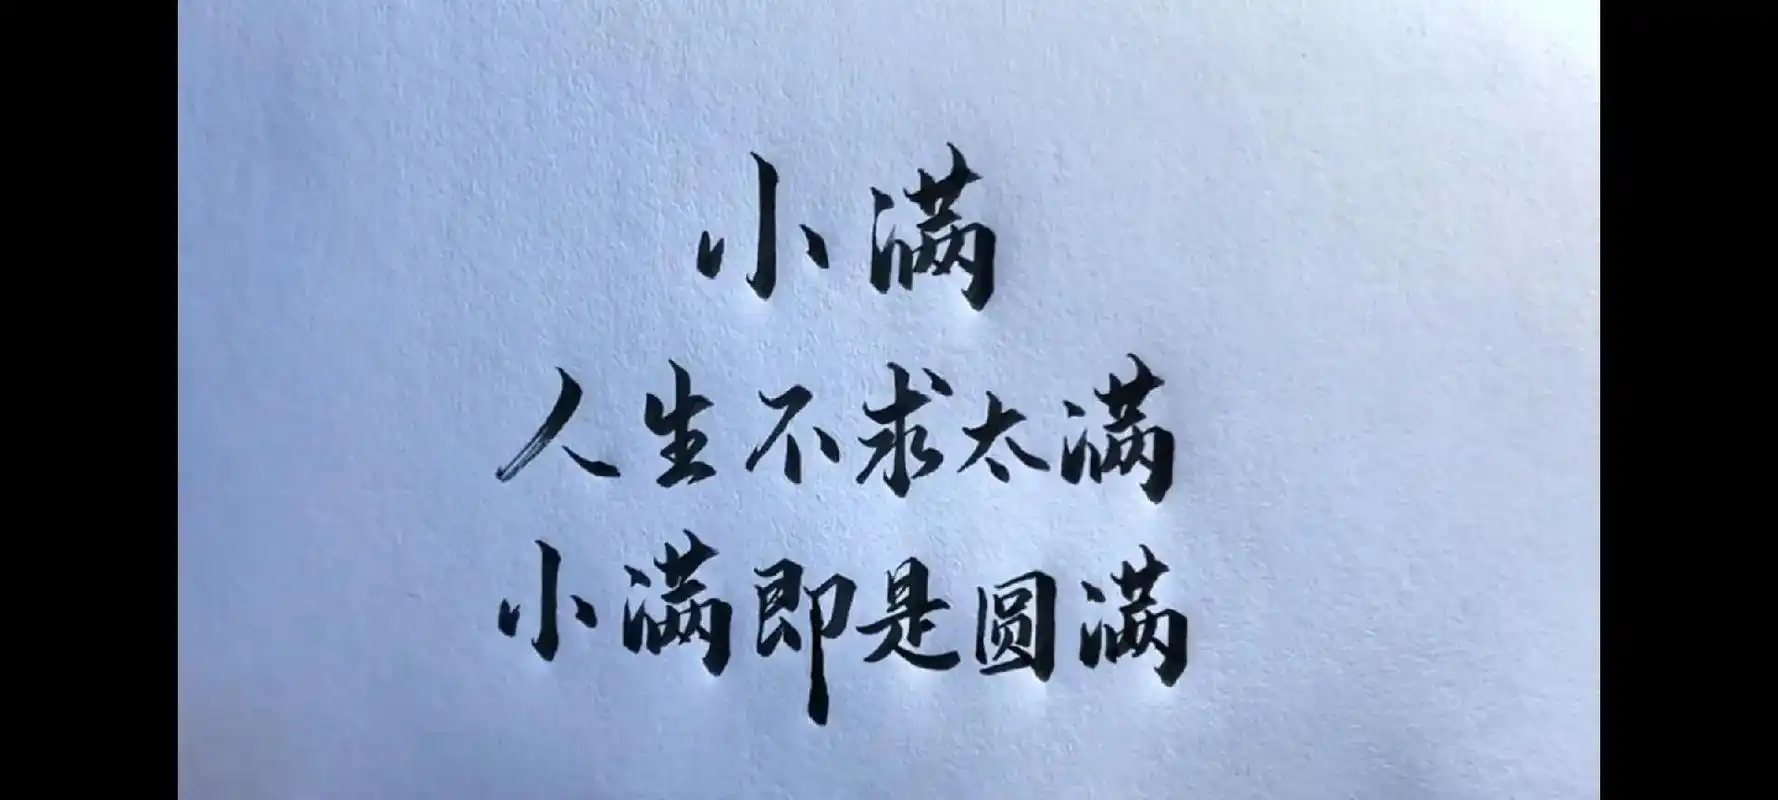 小满
人生不求太满
小满即是圆满